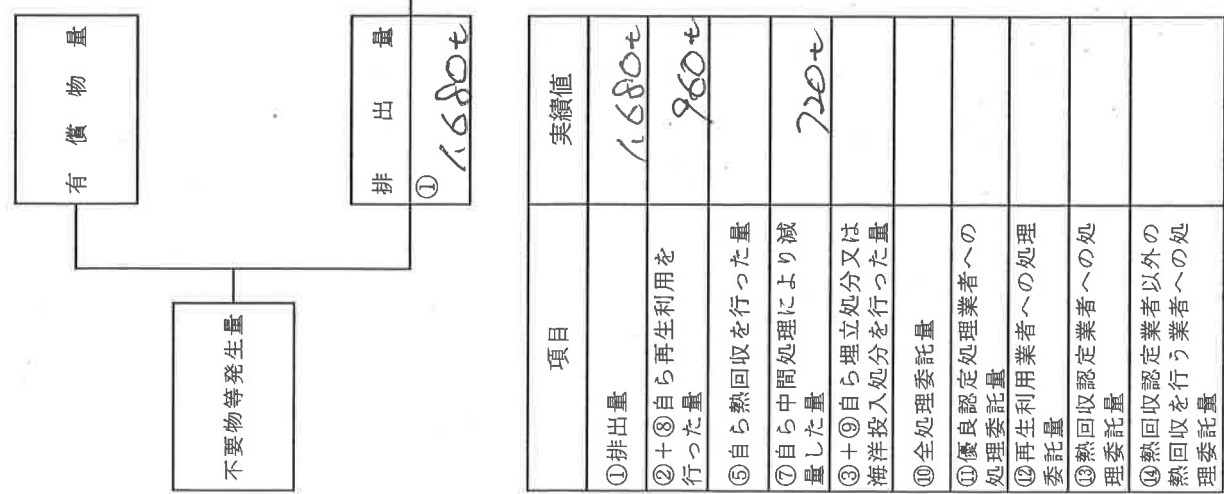 有償物量
不要物等発生量
排出量
①
1,680t
項目
実績値
①排出量
1,680t
②+⑧自ら再生利用を
行った量
960t
⑤自ら熱回収を行った量
⑦自ら中間処理により減
量した量
720t
③+⑨自ら埋立処分又は
海洋投入処分を行った量
⑩全処理委託量
⑪優良認定処理業者への
処理委託量
⑫再生利用業者への処理
委託量
⑬熱回収認定業者への処
理委託量
⑭熱回収認定業者以外の
熱回収を行う業者への処
理委託量